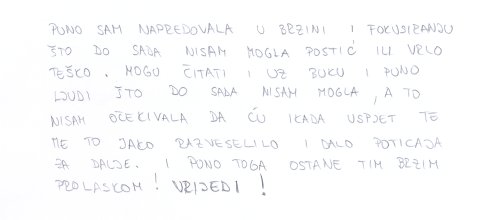 PUNO SAM NAPREDOVALA U BRZINI I FOKUSIRANJU
ŠTO DO SADA NISAM MOGLA POSTIĆ ILI VRLO
TEŠKO. MOGU ČITATI I UZ BUKU I PUNO
LJUDI ŠTO DO SADA NISAM MOGLA, A TO
NISAM OČEKIVALA DA ĆU IKADA USPJET TE
ME TO JAKO RAZVESELILO I DALO POTICAJA
ZA DALJE. I PUNO TOGA OSTANE TIM BRZIM
PROLASKOM! VRIJEDI!